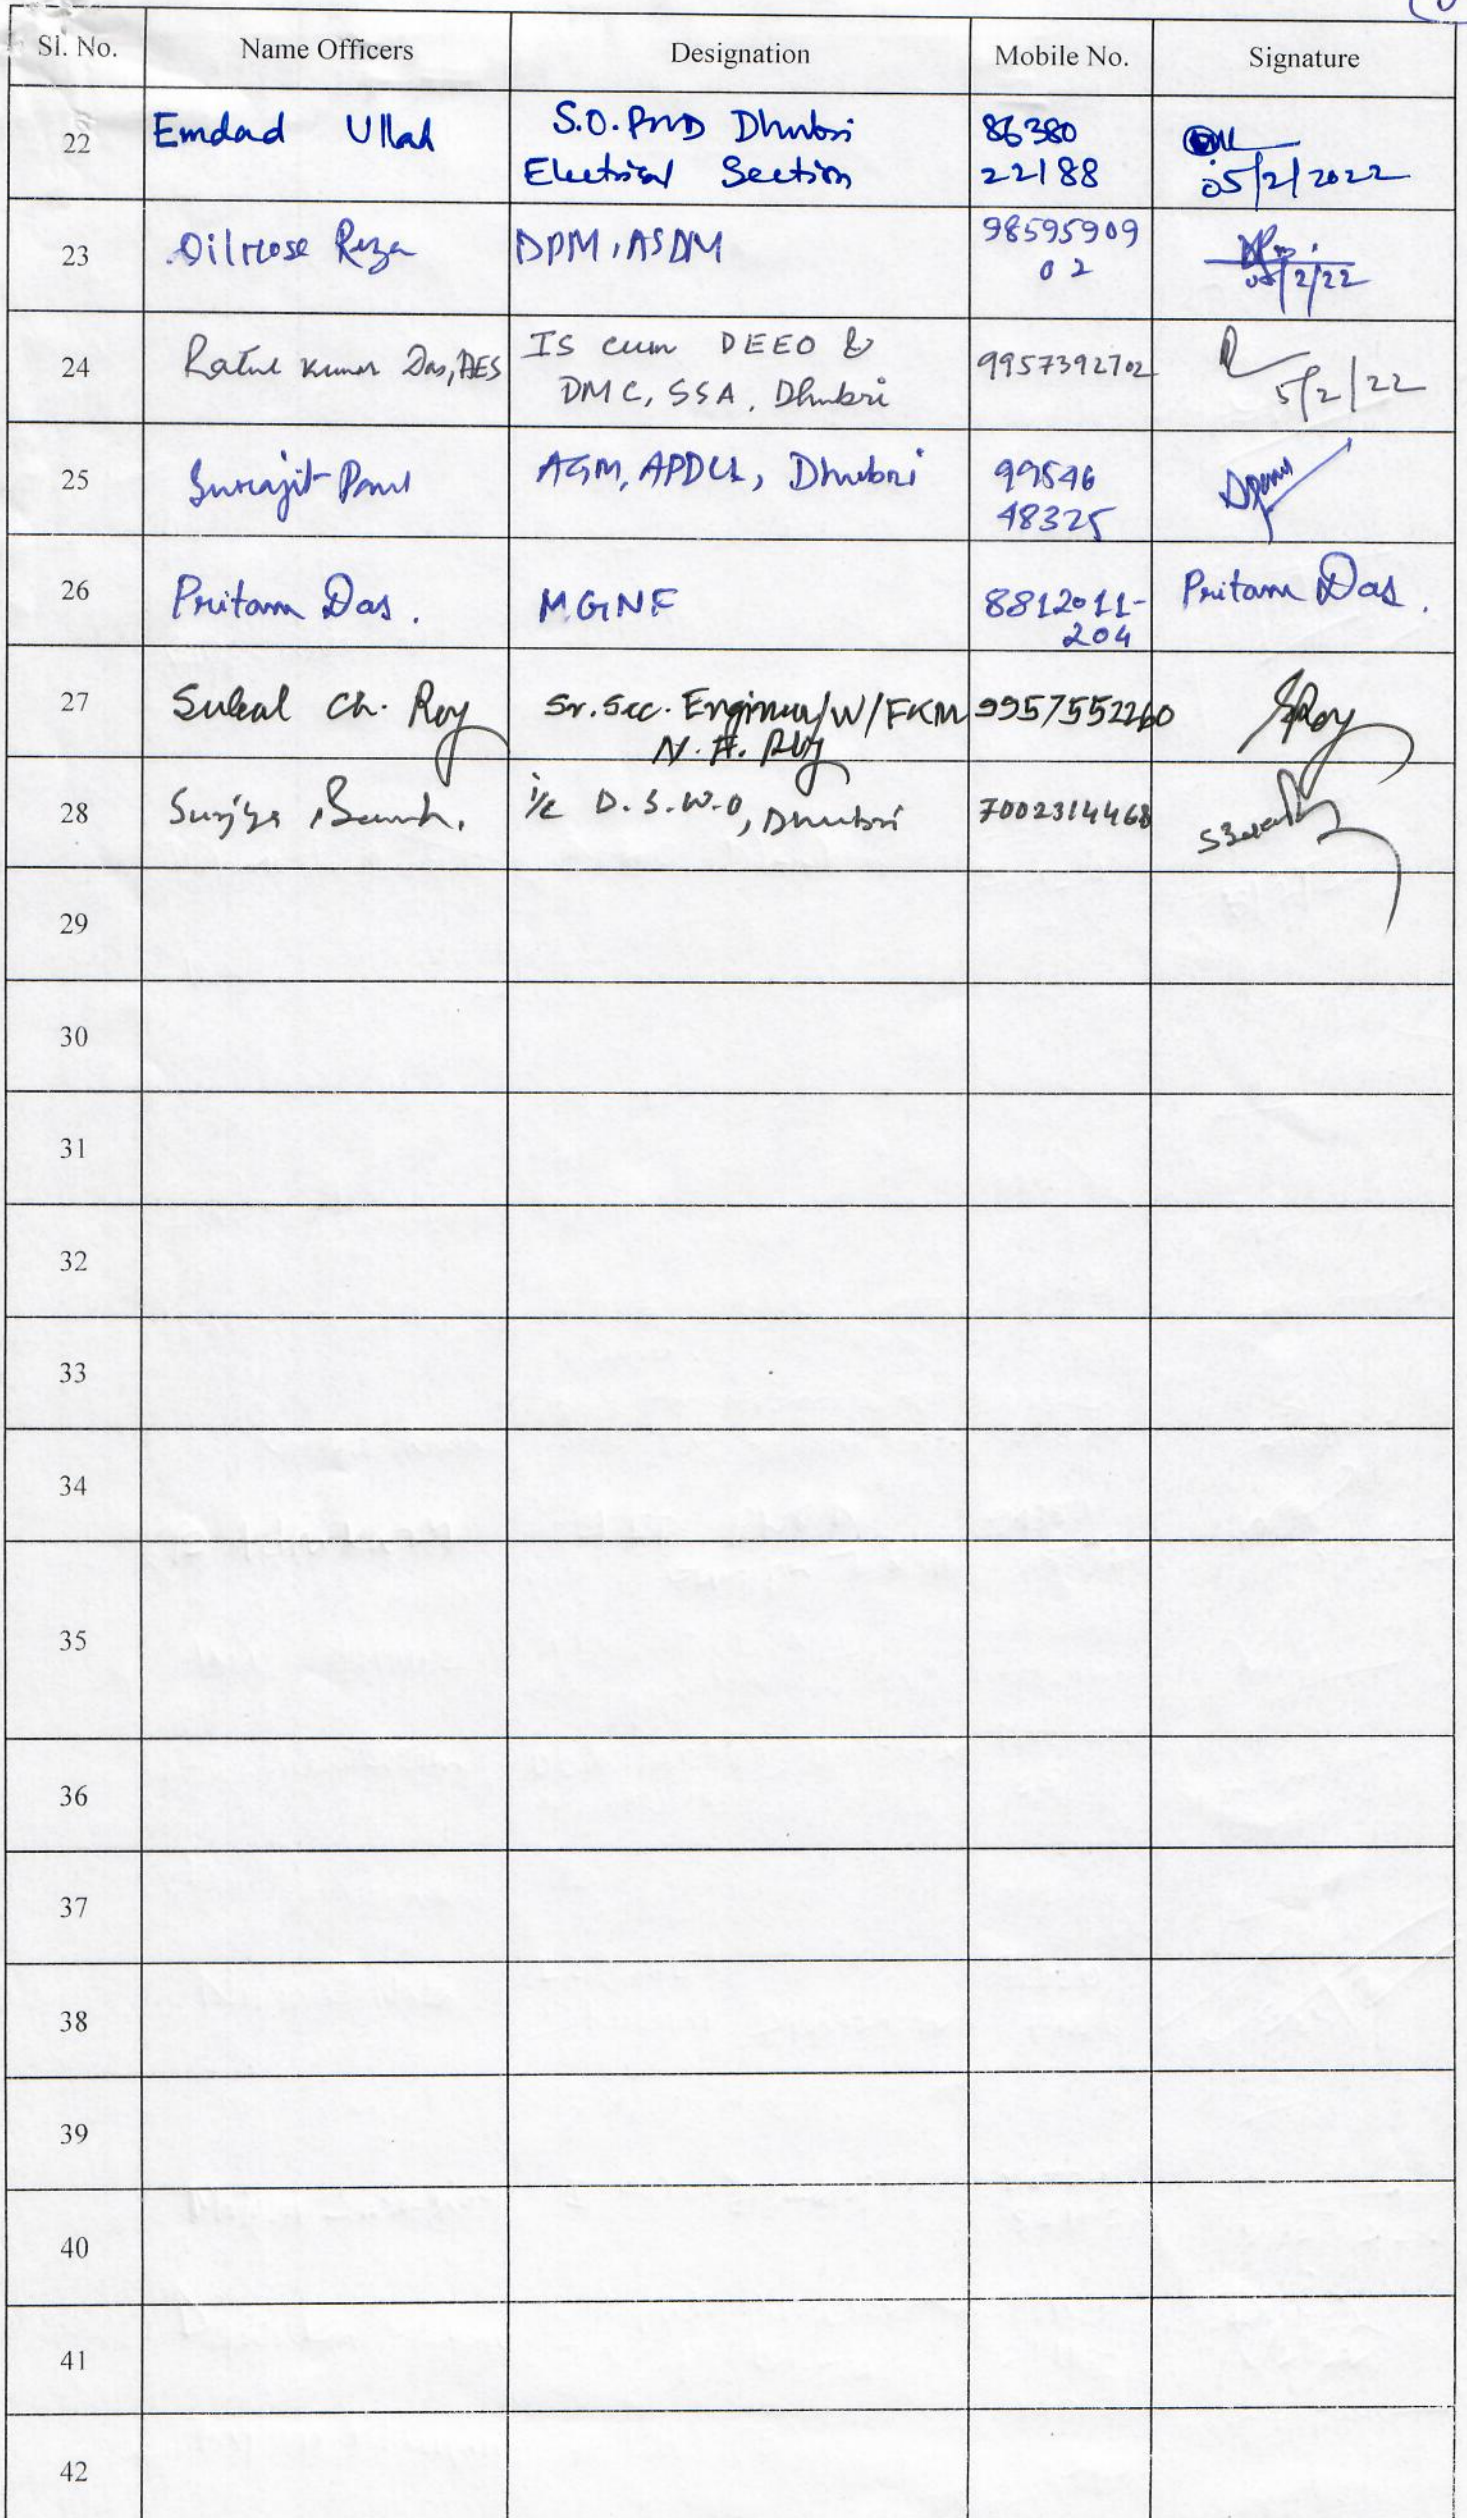 Sl. No. Name Officers Designation Mobile No. Signature
22 Emdad Ullah S.O. PWD Dhubri 86380
Electrical Section 22188 05/2/2022
23 Dilrose Reza DPM, ASDM 98595909
02 05/2/22
24 Ratul Kumar Das, AES IS cum DEEO & 9957392702
DMC, SSA, Dhubri 5/2/22
25 Surajit Paul AGM, APDCL, Dhubri 99546
48325
26 Pritam Das. MGNF 8812011- Pritam Das.
204
27 Subal Ch. Roy Sr. Sec. Engineer/W/FKM 9957552260 SRoy
N.F. Rly
28 i/c D.S.W.O, Dhubri 7002314468
29
30
31
32
33
34
35
36
37
38
39
40
41
42